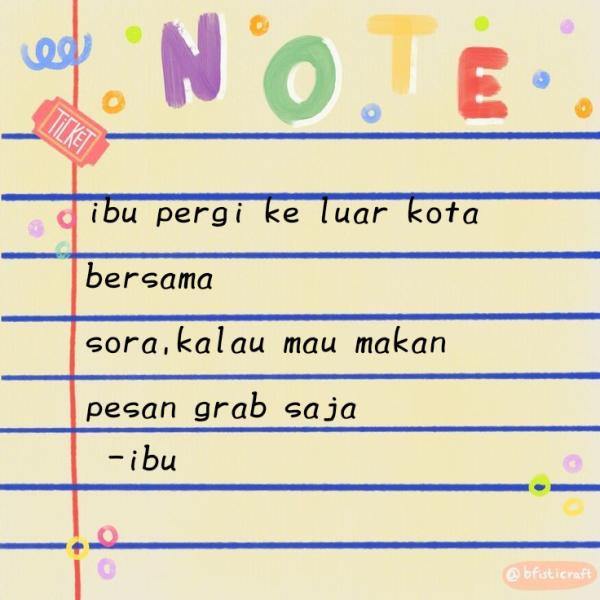 NOTE
TICKET
ibu pergi ke luar kota
bersama
sora,kalau mau makan
pesan grab saja
-ibu
@bfisticraft